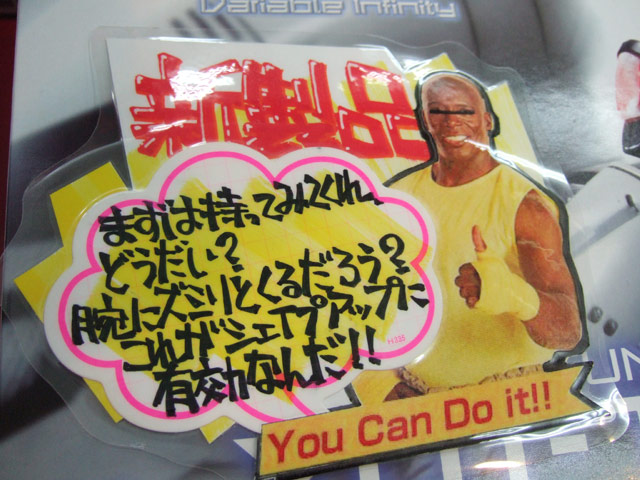 Variable Infinity
新製品
まずは持ってみてくれ、
どうだい?
腕にズシリとくるだろう?
これがシェイプアップに
有効なんだ!!
H335
You Can Do it!!
UN